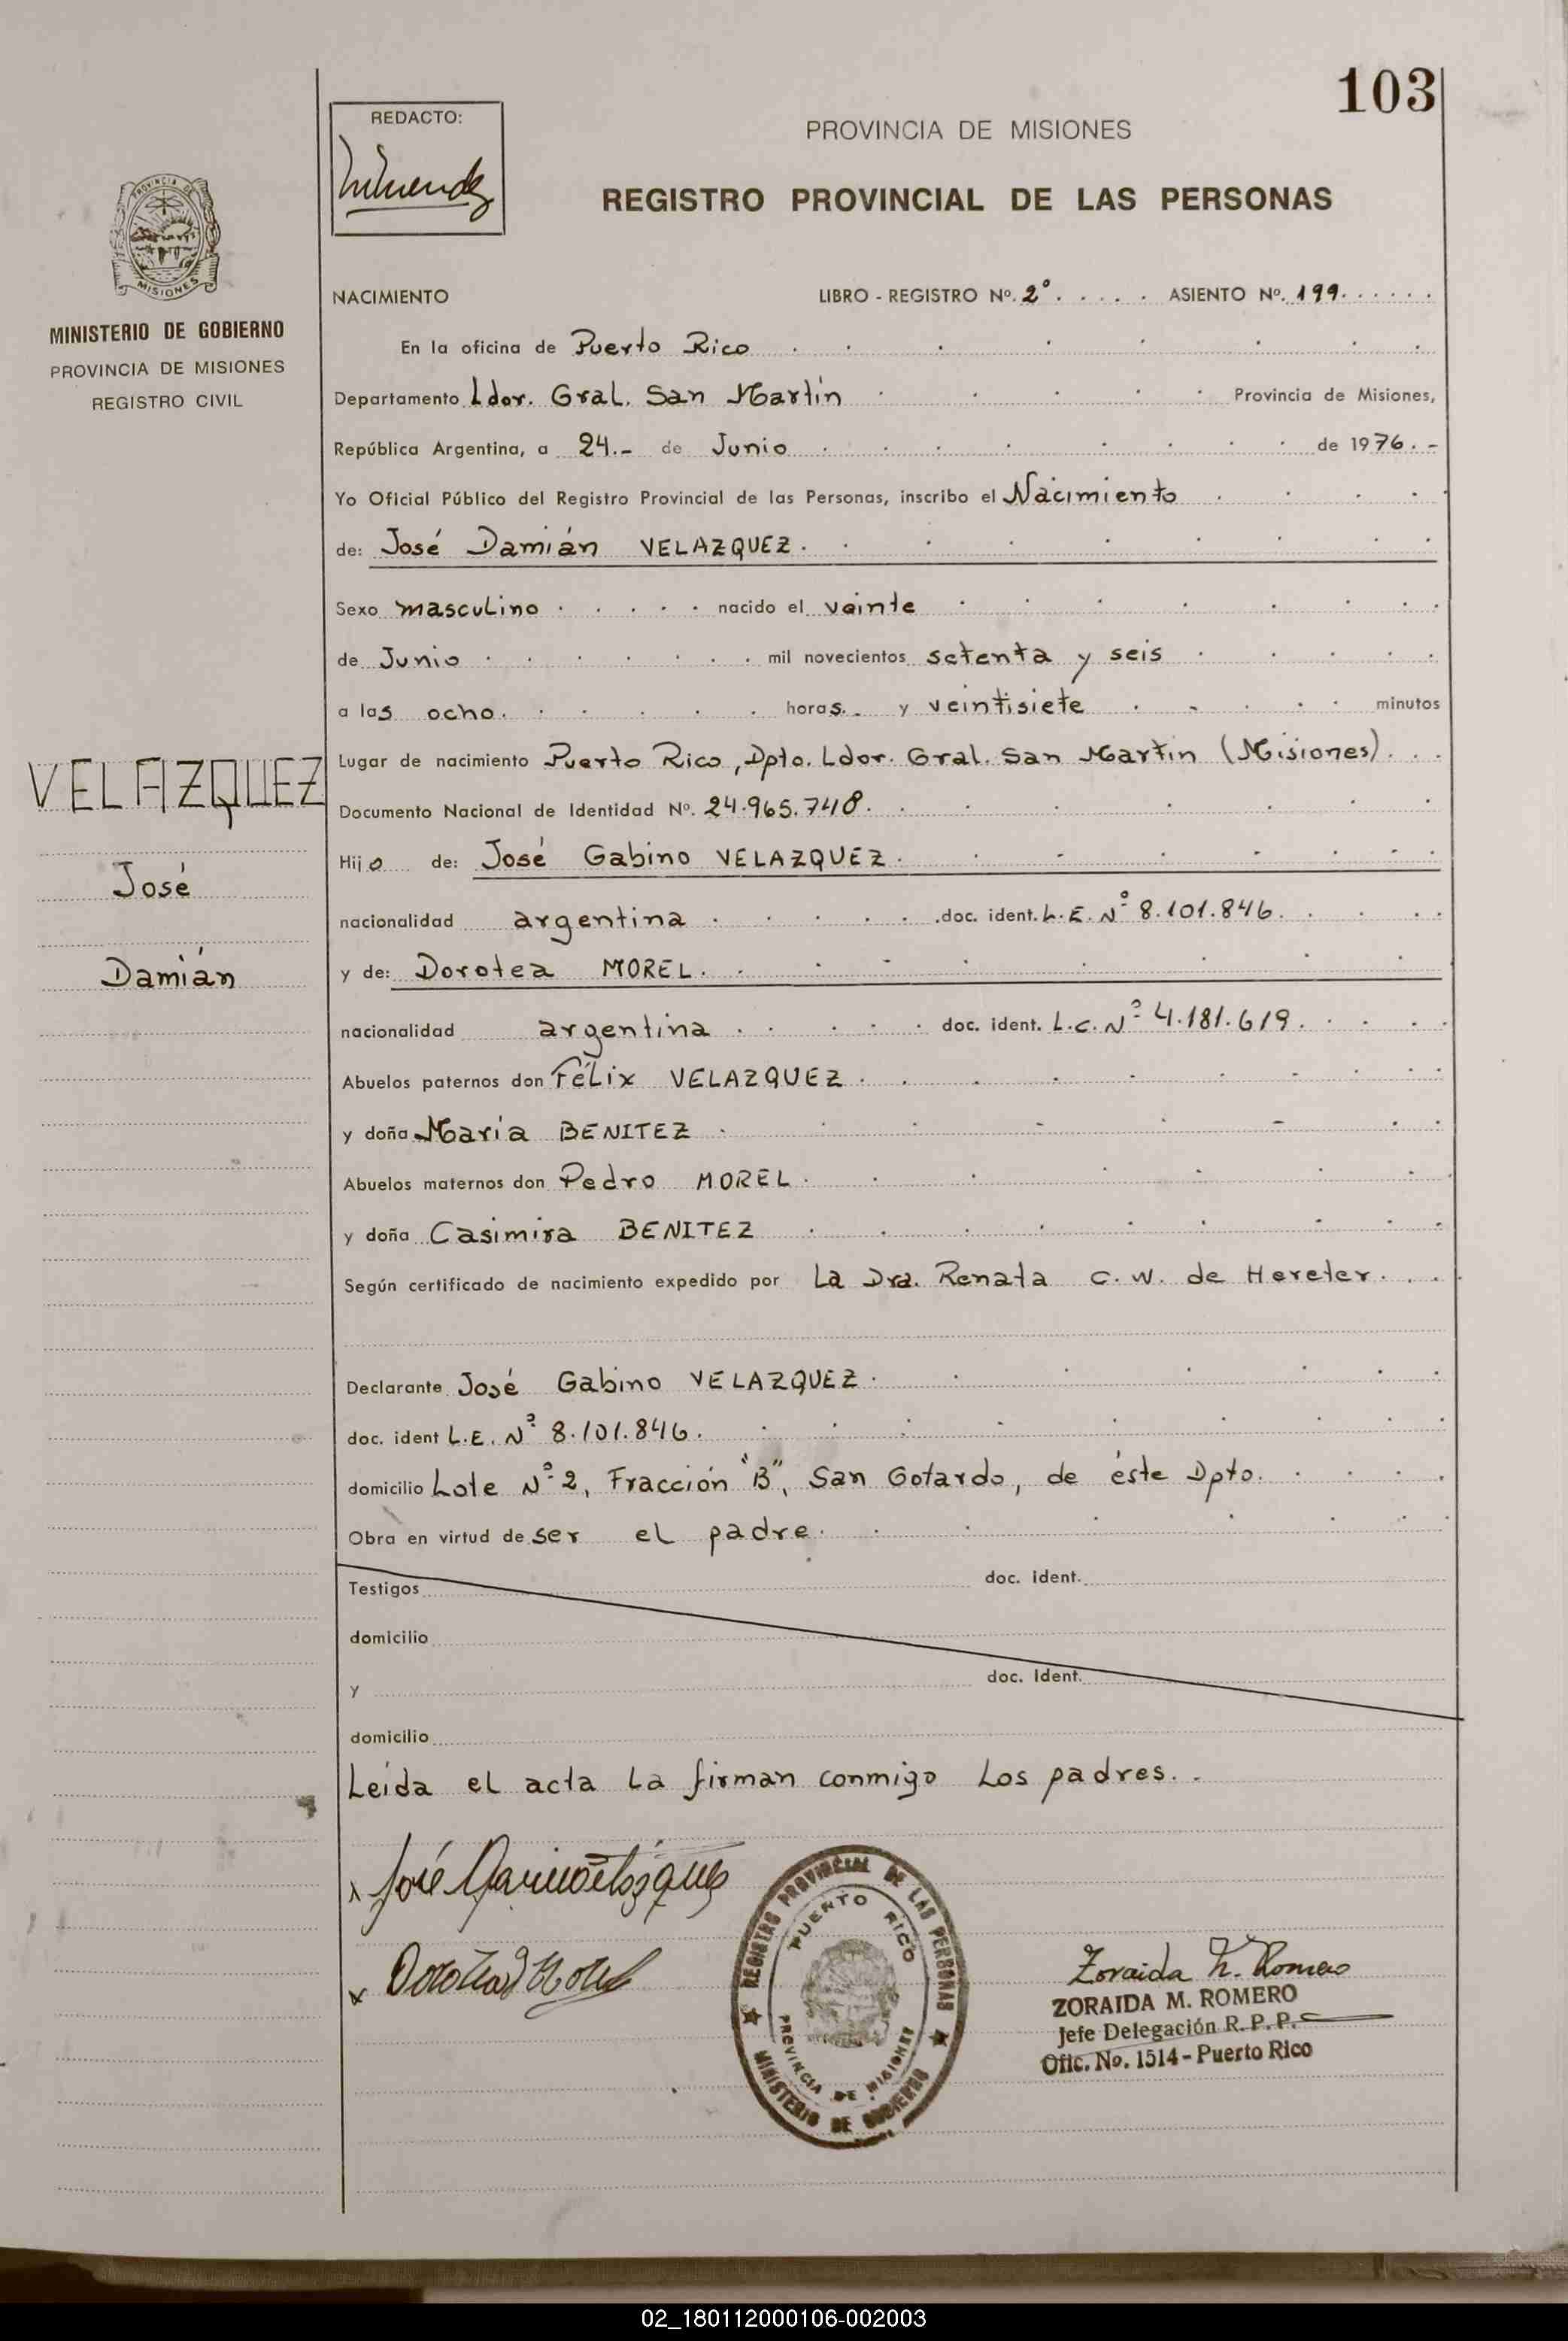 103
REDACTO:
PROVINCIA DE MISIONES
REGISTRO PROVINCIAL DE LAS PERSONAS
PROVINCIA DE
MISIONES
MINISTERIO DE GOBIERNO
PROVINCIA DE MISIONES
REGISTRO CIVIL
NACIMIENTO LIBRO - REGISTRO Nº. 2º ASIENTO Nº. 199
En la oficina de Puerto Rico
Departamento Ldor. Gral. San Martín Provincia de Misiones,
República Argentina, a 24.- de Junio de 1976.-
Yo Oficial Público del Registro Provincial de las Personas, inscribo el Nacimiento
de: José Damián VELAZQUEZ.
Sexo masculino nacido el veinte
de Junio mil novecientos setenta y seis
a las ocho. horas.- y veintisiete minutos
Lugar de nacimiento Puerto Rico, Dpto. Ldor. Gral. San Martín (Misiones).
Documento Nacional de Identidad Nº. 24.965.748.
Hijo de: José Gabino VELAZQUEZ.
nacionalidad argentina doc. ident. L.E. Nº 8.101.846.
y de: Dorotea MOREL.
nacionalidad argentina doc. ident. L.C. Nº 4.181.619.
Abuelos paternos don Félix VELAZQUEZ
y doña María BENITEZ
Abuelos maternos don Pedro MOREL
y doña Casimira BENITEZ
Según certificado de nacimiento expedido por La Dra. Renata C. W. de Hereter.
Declarante José Gabino VELAZQUEZ
doc. ident L.E. Nº 8.101.846.
domicilio Lote Nº 2, Fracción "B", San Gotardo, de éste Dpto.
Obra en virtud de ser el padre
Testigos doc. ident.
domicilio
y doc. Ident.
domicilio
Leída el acta la firman conmigo los padres.
VELAZQUEZ
José
Damián
José Velázquez
Dorotea Morel
REGISTRO PROVINCIAL DE LAS PERSONAS
PUERTO RICO
PROVINCIA DE MISIONES
MINISTERIO DE GOBIERNO
Zoraida M. Romero
ZORAIDA M. ROMERO
Jefe Delegación R. P. P.
Ofic. No. 1514 - Puerto Rico
02_180112000106-002003